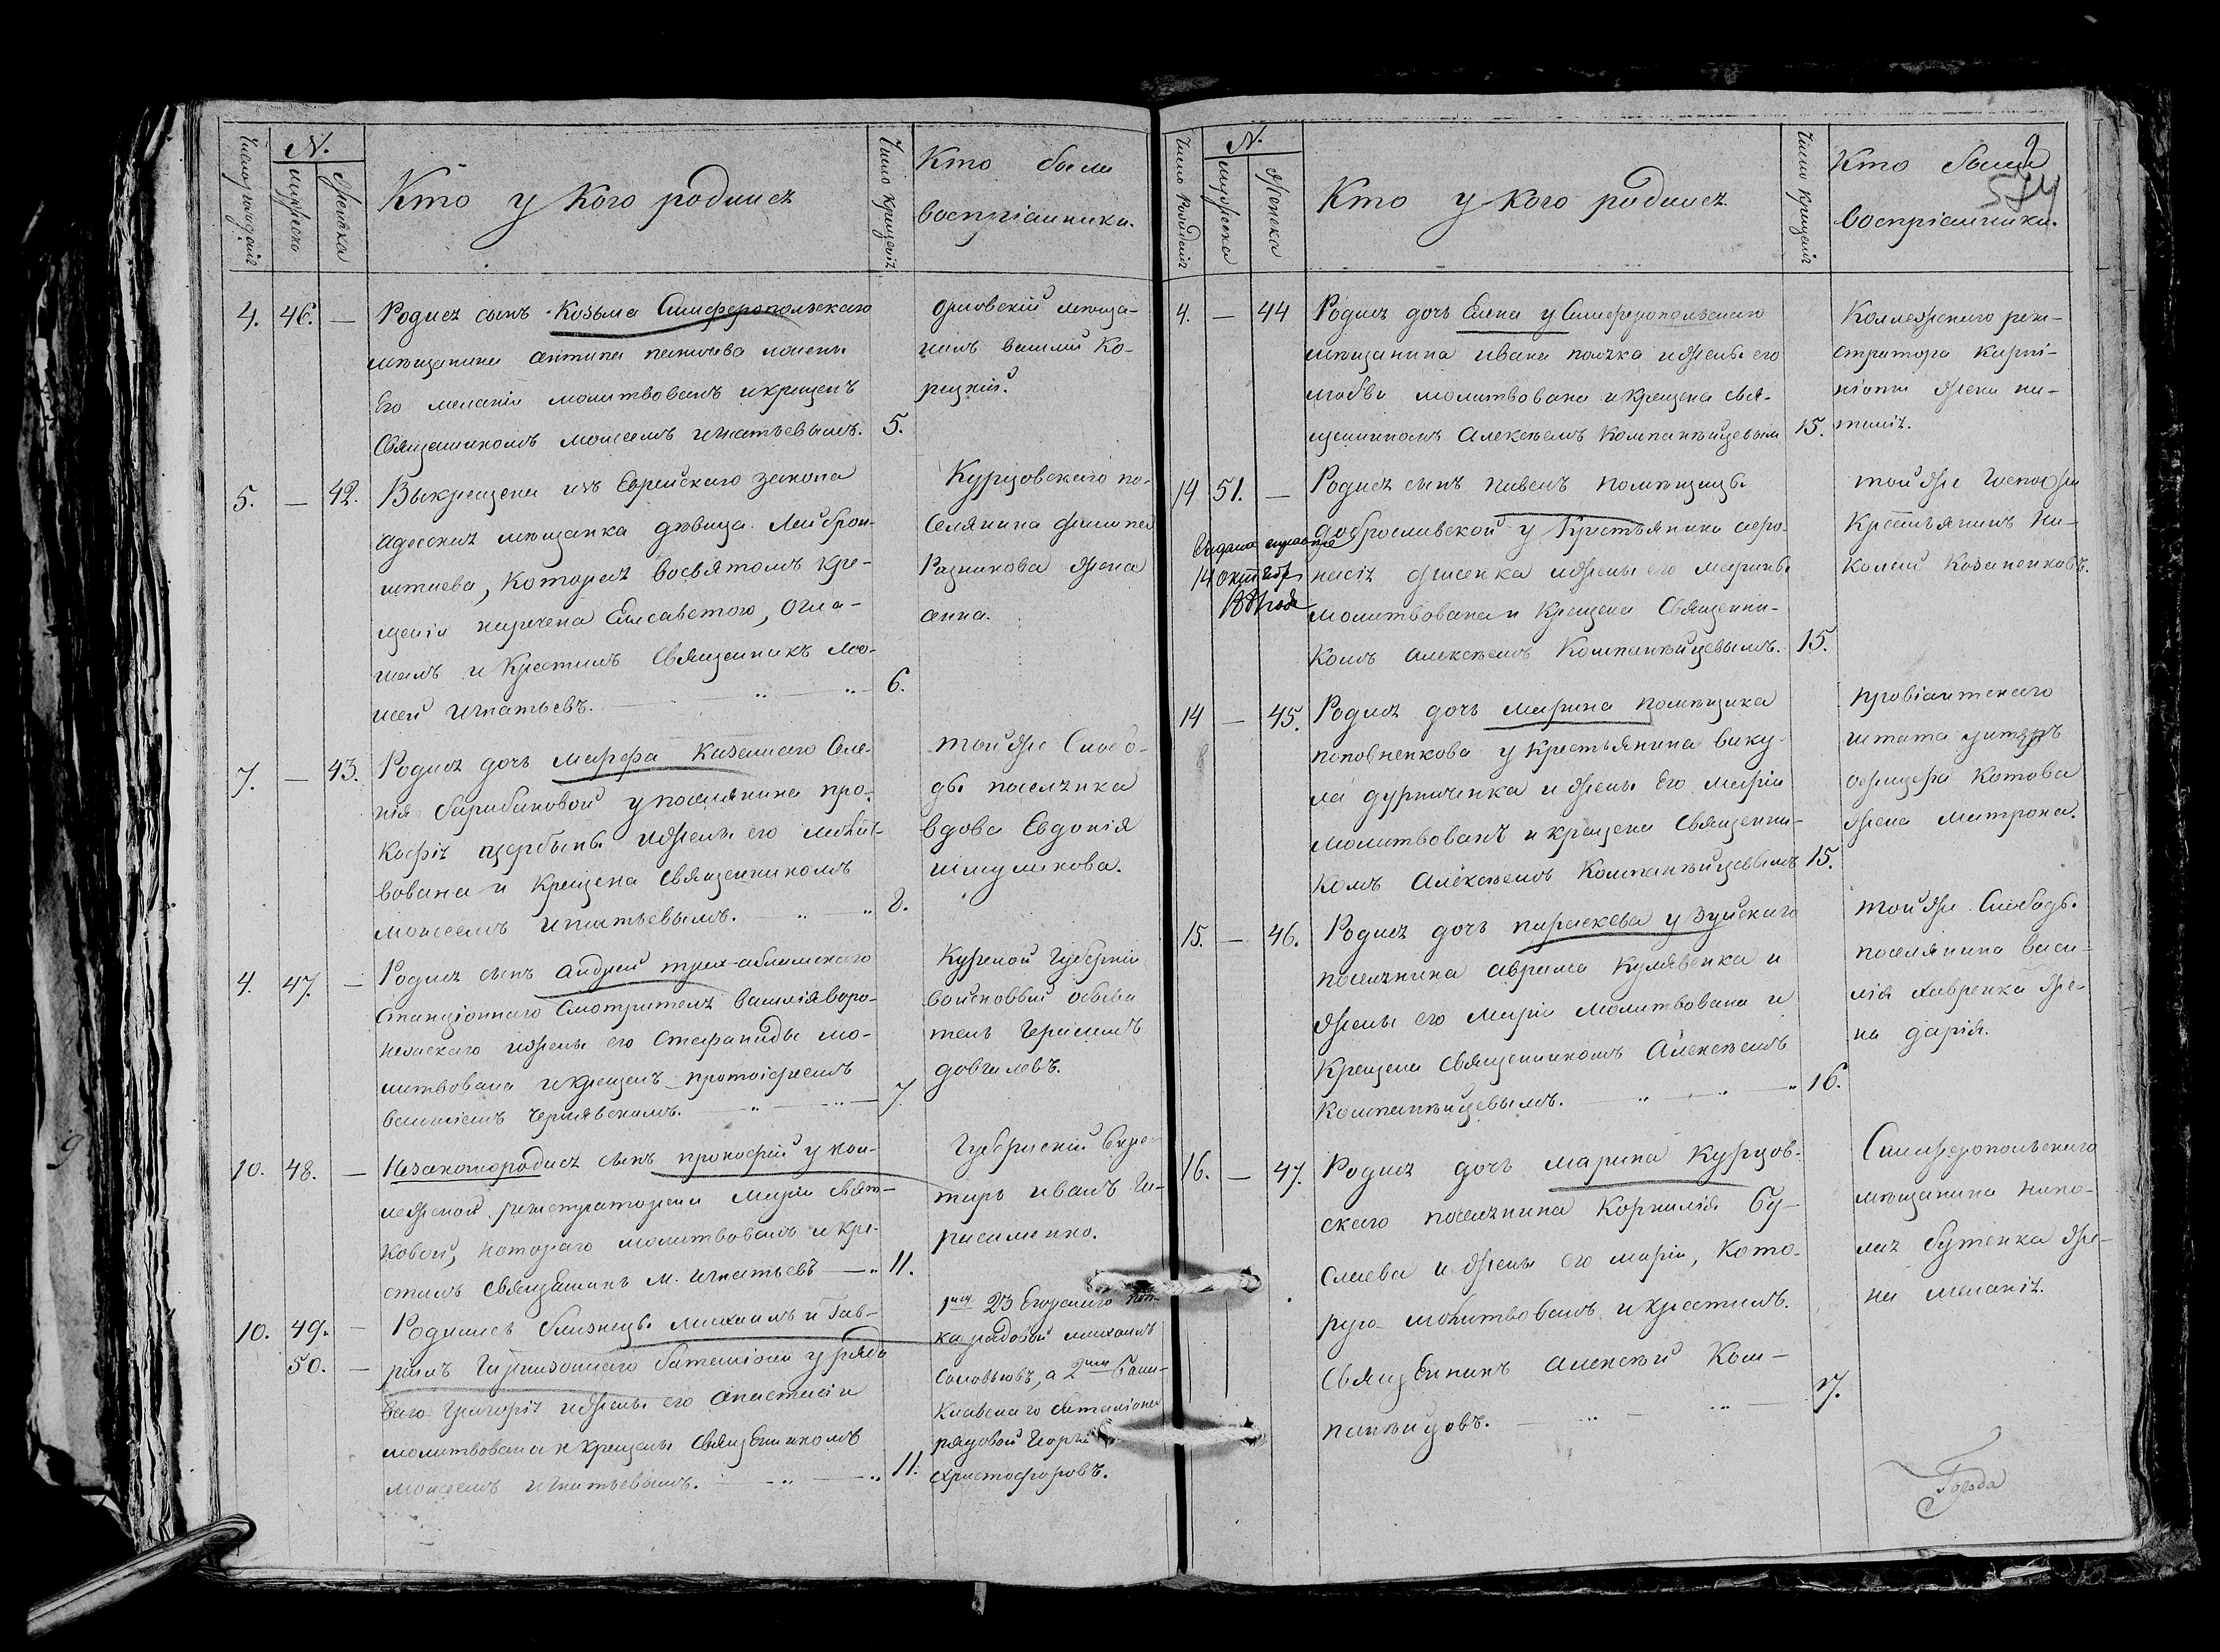 Число рождения
N.
мужеска
женска
Кто у Кого родился
Число крещения
Кто были
воспріемники.
4. 46. — Родился сынъ Козьма Симферопольскаго
мѣщанина антипа жены
Его меланіи молитвованъ и крещенъ
Священникомъ Моисеемъ игнатьевымъ. 5.
Орловскій мѣща-
нинъ василій Ко-
рецкій.
5. — 42. Выкрещена изъ Еврейскаго закона
адесская мѣщанка дѣвица
которая восвятомъ кре-
щеніи наречена Елисаветою, огла-
шалъ и Крестилъ Священникъ мо-
исей игнатьевъ. 6.
Курцовскаго по-
селянина филипа
Разникова жена
анна.
7. — 43. Родилась дочь марфа Казеннаго Селе-
нія у поселянина про-
кофія щербины и жены его молит-
вована и крещена Священникомъ
моисеемъ игнатьевымъ. 8.
той же Слобо-
ды поселянка
вдова Евдокія
шмуликова.
4. 47. — Родился сынъ андрей трех-абламскаго
Станціоннаго Смотрителя василія воро-
и жены его Стефаниды мо-
литвована и крещенъ протоіереемъ
василіемъ чернявскимъ. 7.
Курской Губерніи
войсковый обыва
тель Герасимъ
10. 48. — Незаконородился сынъ прокофій у кол-
лежской регистраторши Маріи
ковой, котораго молитвовалъ и кре-
стилъ Священникъ М. игнатьевъ — 11.
Губернскій Секре-
тарь иванъ Ге-
расименко.
10. 49. — Родились близнецы михаилъ и Гав-
50. — ріилъ Гарнизоннаго баталіона у рядо
ваго Григорія и жены его анастасіи
молитвованы и крещены Священникомъ
моисеемъ игнатьевымъ. 11.
1му 23 Егерскаго пол-
ка рядовой михаилъ
Соловьевъ, а 2му Бала-
клавскаго баталіона
рядовой Георгій
христофоровъ.
Число рожденія
N.
мужеска
женска
Кто у кого родился
Число крещенія
Кто были
воспріемники.
4. — 44 Родилась дочь Елена у Симферопольскаго
мѣщанина ивана и жены его
любви молитвована и крещена свя-
щенникомъ Алексѣемъ Компанѣйцевым 15.
Коллежскаго реги-
стратора
жена на-
талія.
14 51. — Родился сынъ павелъ помѣщицы
доброславской у Крестьянина афо-
насія и жены его марины
молитвована и крещена Священни-
комъ алексѣемъ Компанѣйцевымъ. 15.
той же Госпожи
Крестьянинъ Ни-
колай Козаченковъ.
14 октября
14 — 45. Родилась дочь марина помѣщика
у крестьянина вику-
ла и жены Его маріи
молитвованъ и крещена Священни-
комъ Алексѣемъ Компанѣйцевымъ 15.
провіантскаго
штата унтеръ
офицера Котова
жена матрона.
15. — 46. Родилась дочь параскева у зуйскаго
поселянина аврама Кулявенка и
жены его маріи молитвована и
Крещена Священникомъ Алексѣемъ
Компанѣйцевымъ. 16.
той же Слободы
поселянина васи-
лія лавренка же-
на дарія.
16. — 47. Родилась дочь марина Курцов-
скаго поселянина Корнилія Бу-
слаева и жены его маріи, Кото-
рую молитвовалъ и крестилъ
Священникъ алексѣй Ком-
панѣйцовъ. 17.
Симферопольскаго
мѣщанина нико-
лая бутенка же-
на меланія.